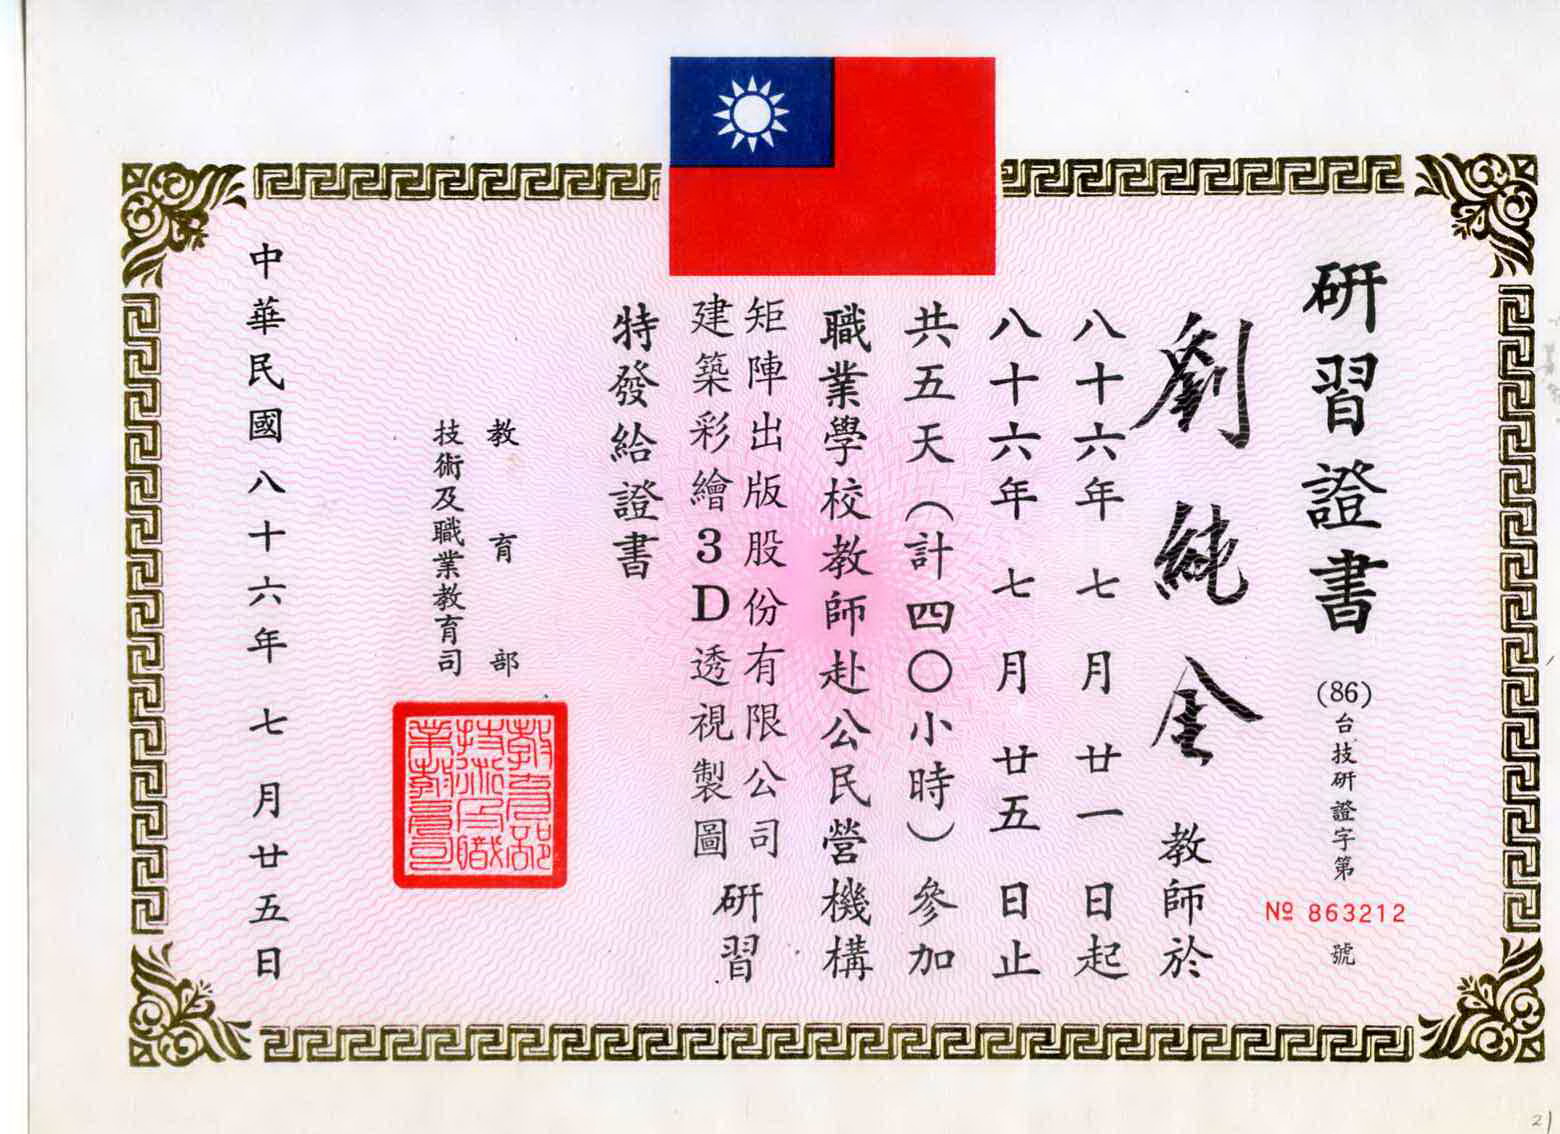 研習證書
(86)台技研證字第
№ 863212
號
劉純全 教師於
八十六年七月廿一日起
八十六年七月廿五日止
共五天（計四〇小時）參加
職業學校教師赴公民營機構
矩陣出版股份有限公司
建築彩繪3D透視製圖
研習
特發給證書
教育部
技術及職業教育司
教育部
技術及職
業教育司
中華民國八十六年七月廿五日
21